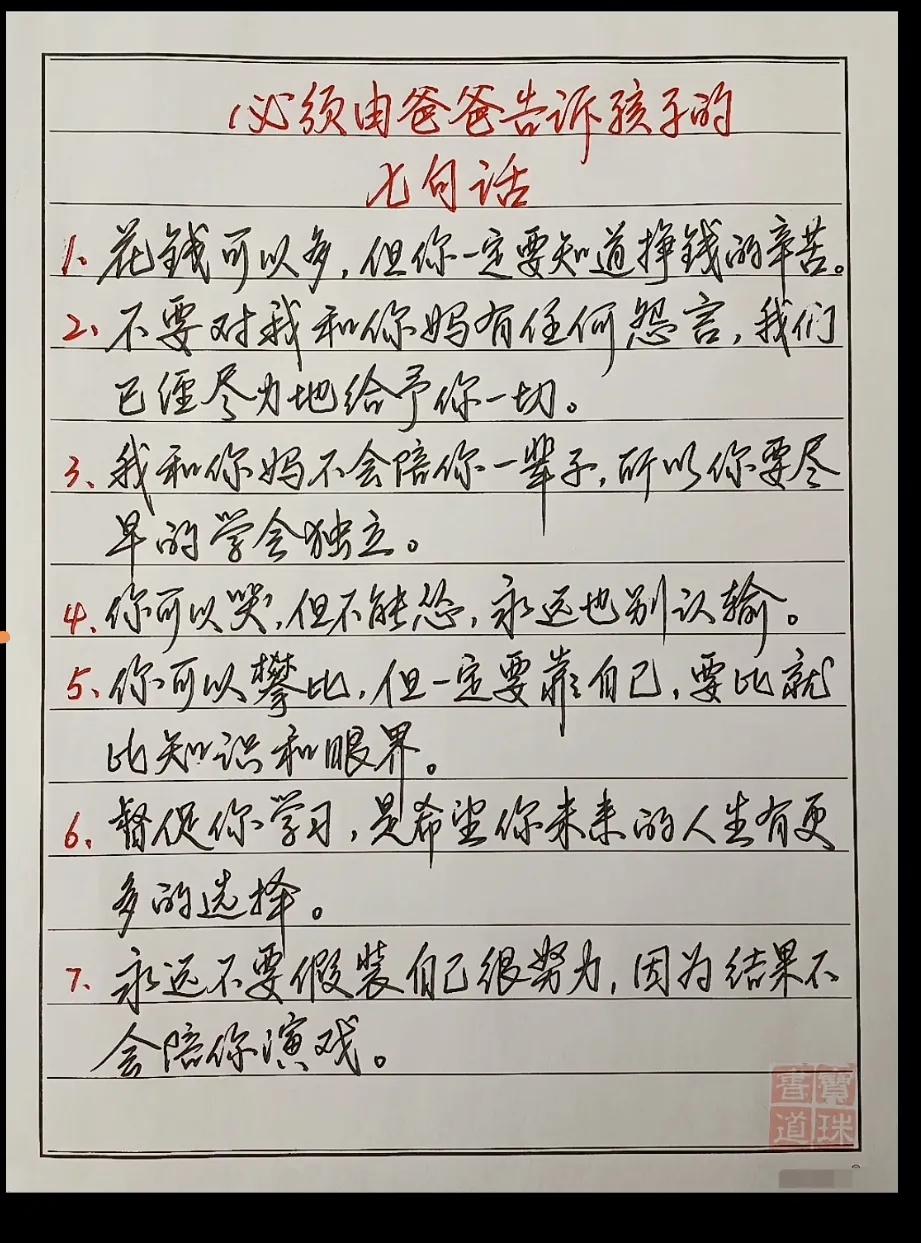 必须由爸爸告诉孩子的
七句话
1、花钱可以多，但你一定要知道挣钱的辛苦。
2、不要对我和你妈有任何怨言，我们
已经尽力地给予你一切。
3、我和你妈不会陪你一辈子，所以你要尽
早的学会独立。
4、你可以哭，但不能怂，永远也别认输。
5、你可以攀比，但一定要靠自己，要比就
比知识和眼界。
6、督促你学习，是希望你未来的人生有更
多的选择。
7、永远不要假装自己很努力，因为结果不
会陪你演戏。
書寶
道珠